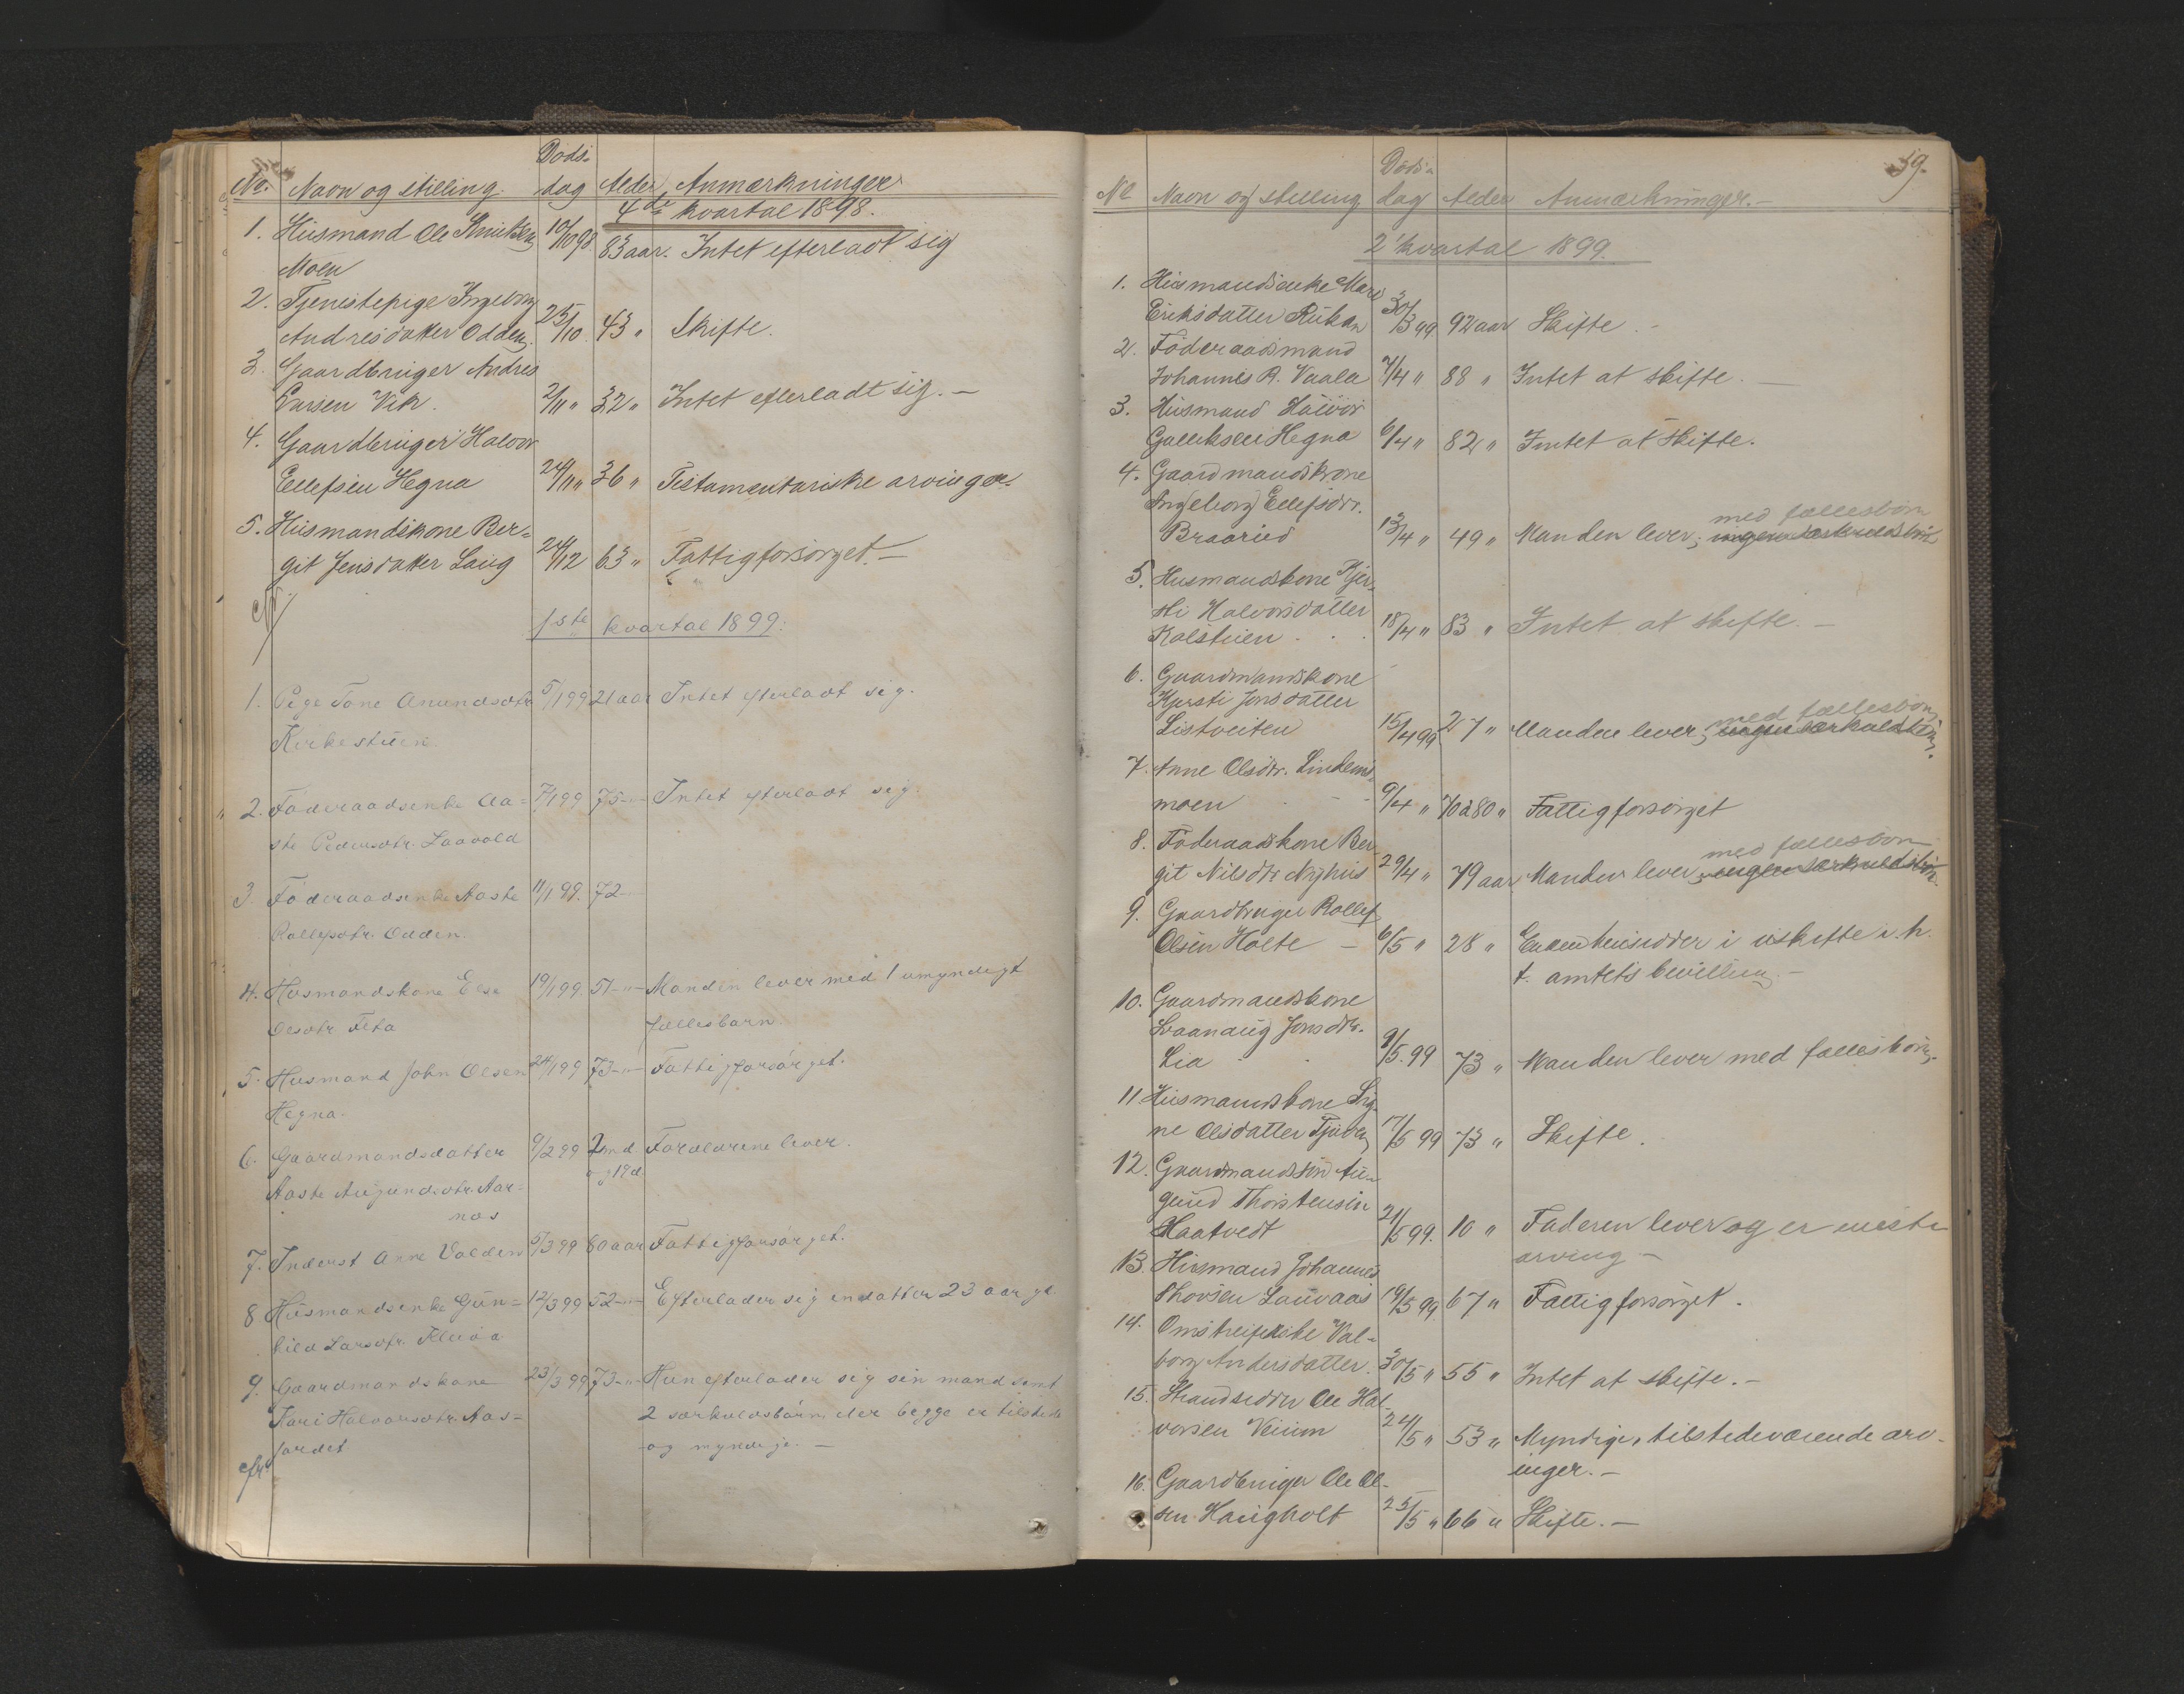 No. Navn og stilling. Døds-dag Alder Anmærkninger
4de kvartal 1898.
1. Husmand Ole Knutsen 10/10 98 83 aar. Intet efterladt sig
Moen
2. Tjenestepige Ingeborg
Andresdatter Odden. 25/10 43 " Skifte.
3. Gaardbruger Andres
Larsen Vik. 2/11 " 32 " Intet efterladt sig. —
4. Gaardbruger Halvor
Ellefsen Hegna 24/11 " 36 " Testamentariske arvinger.
5. Husmandskone Ber-
git Jensdatter Laug 24/12 63 " Fattigforsørget. —
1ste kvartal 1899.
1. Pige Tone Anundsdtr. 5/1 99 21 aar Intet efterladt sig.
Kirkestuen.
2. Føderaadsenke Aa- 7/1 99 75 -"- Intet efterladt sig.
ste Pedersdtr. Laavold
3. Føderaadsenke Aaste 11/1 99. 72 -
Rollefsdtr. Odden.
4. Husmandskone Else 19/1 99. 51 -"- Manden lever med 1 umyndigt
Olsdtr. fællesbarn.
5. Husmand John Olsen 24/1 99 73 -"- Fattigforsørget.
Hegna.
6. Gaardmandsdatter 9/2 99 2 md Forældrene lever.
Aaste Augundsdtr. Aar- og 19 d
nes
7. Inderst Anne Valden 5/3 99 80 aar Fattigforsørget.
8 Husmandsenke Gun- 12/3 99 52 -"- Efterlader sig en datter 23 aar gl.
hild Larsdtr.
9. Gaardmandskone 23/3 99 73 -"- Hun efterlader sig sin mand samt
Kari Halvorsdtr. Aas- 2 særkuldsbørn, der begge er tilstede
jordet og myndige. —
59.
No Navn og stilling Døds-dag Alder Anmærkninger. —
2' kvartal 1899.
1. Husmandsenke Mari
Eriksdatter Rukan 30/3 99. 92 aar Skifte. -
2. Føderaadsmand
Johannes R. Vaala 7/4 " 88 " Intet at skifte. —
3. Husmand Halvor
Gulliksen Hegna 6/4 " 82 " Intet at skifte.
4. Gaardmandskone
Ingeborg Ellefsdtr. med fællesbørn
Braarud 13/4 " 49 " Manden lever; ingen særkuldsbørn
5. Husmandskone Kjer-
sti Halvorsdatter
Kolstuen . . . 18/4 " 83 " Intet at skifte. —
6. Gaardmandskone
Kjersti Jonsdatter med fællesbørn
Listveiten 15/4 99 27 " Manden lever; ingen særkuldsbørn.
7. Anne Olsdtr. Lindems-
moen - - - 9/4 " 70 à 80 " Fattigforsørget
8. Føderaadskone Ber- med fællesbørn
git Nilsdtr Nyhus 29/4 " 79 aar Manden lever; ingen særkuldsbørn.
9. Gaardbruger Rollef
Olsen Holte — 6/5 " 28 " Enken hensidder i uskifte i. h.
t. amtets bevilling. —
10. Gaardmandskone
Svanaug Jonsdtr.
Lia 9/5. 99 73 " Manden lever med fællesbørn.
11 Husmandskone Sig-
ne Olsdatter 17/5 99 73 " Skifte.
12. Gaardmandssøn Au-
gund Thorstensen
Haatvedt 21/5 99. 10 " Faderen lever og er eneste
arving —
13. Husmand Johannes
Thovsen Lauvaas 19/5 99. 67 " Fattigforsørget.
14. Omstreiferske Val-
borg Andersdatter 30/5 " 55 " Intet at skifte. —
15. Strandsidder Ole Hal-
vorsen Veium 24/5 " 53 " Myndige, tilstedeværende arv-
inger. —
16. Gaardbruger Ole Ol-
sen Haugholt 25/5 " 66 " Skifte. —